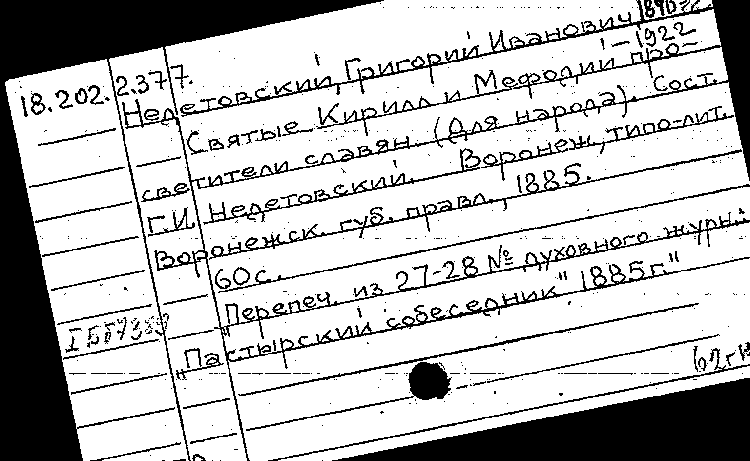 18.202.2.377.
Недетовский, Григорий Иванович,
–1922
Святые Кирилл и Мефодий про-
светители славян. (Для народа). Сост.
Г.И. Недетовский. Воронеж, типо-лит.
Воронежск. губ. правл., 1885.
60с.
"Перепеч. из 27-28 № духовного журн.:
"Пастырский собеседник" 1885г."